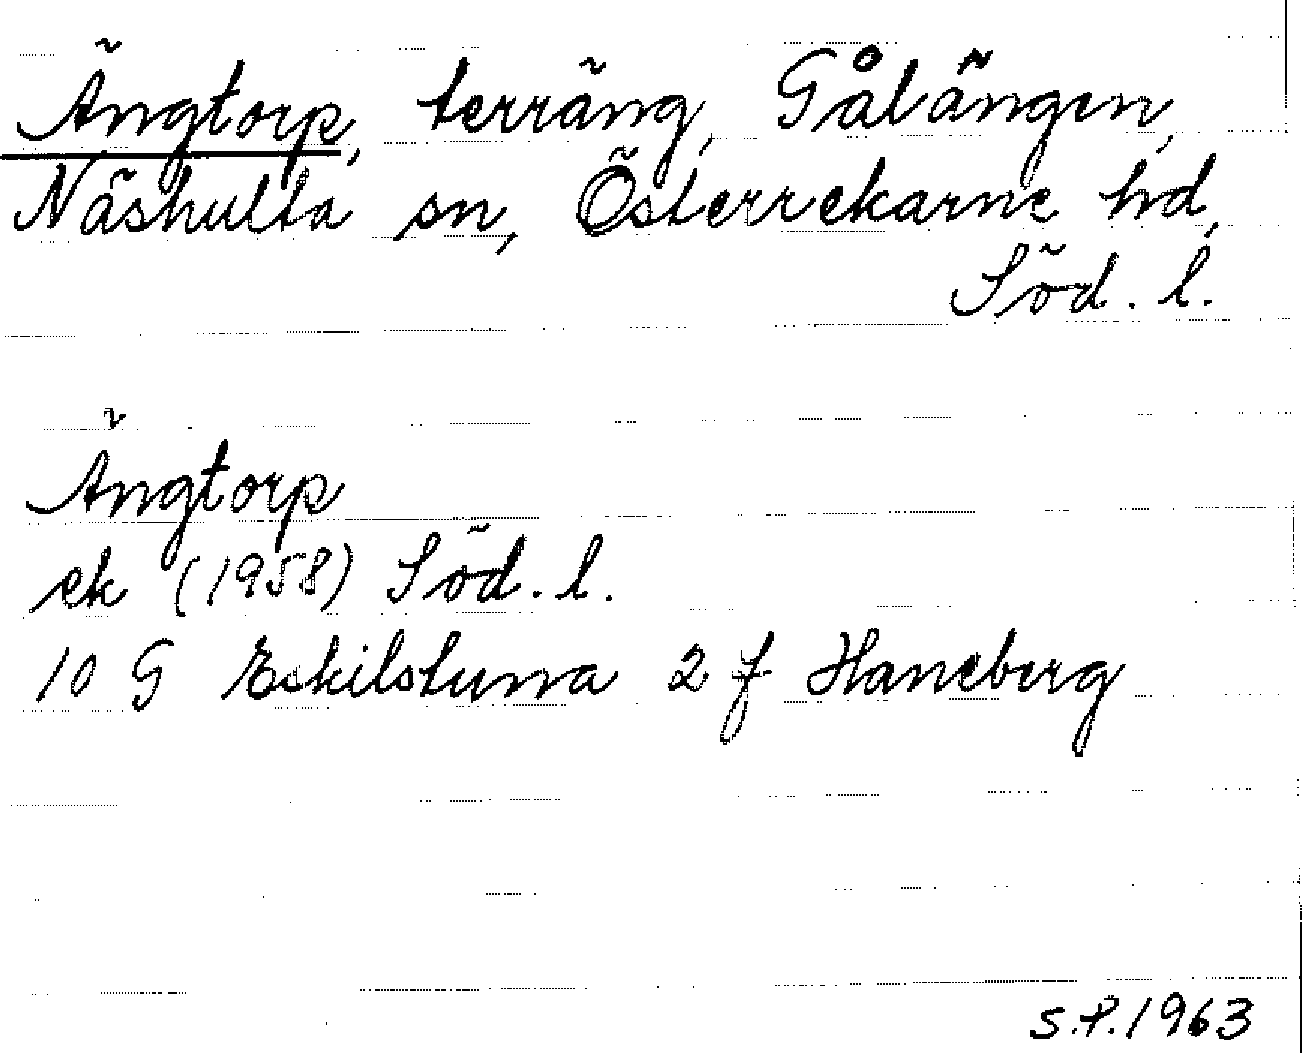 Ängtorp, terräng, Gålängen,
Näshulta sn, Österrekarne hd,
Söd. l.
Ängtorp
ek (1958) Söd. l.
10 G Eskilstuna 2 f Haneberg
S.P. 1963